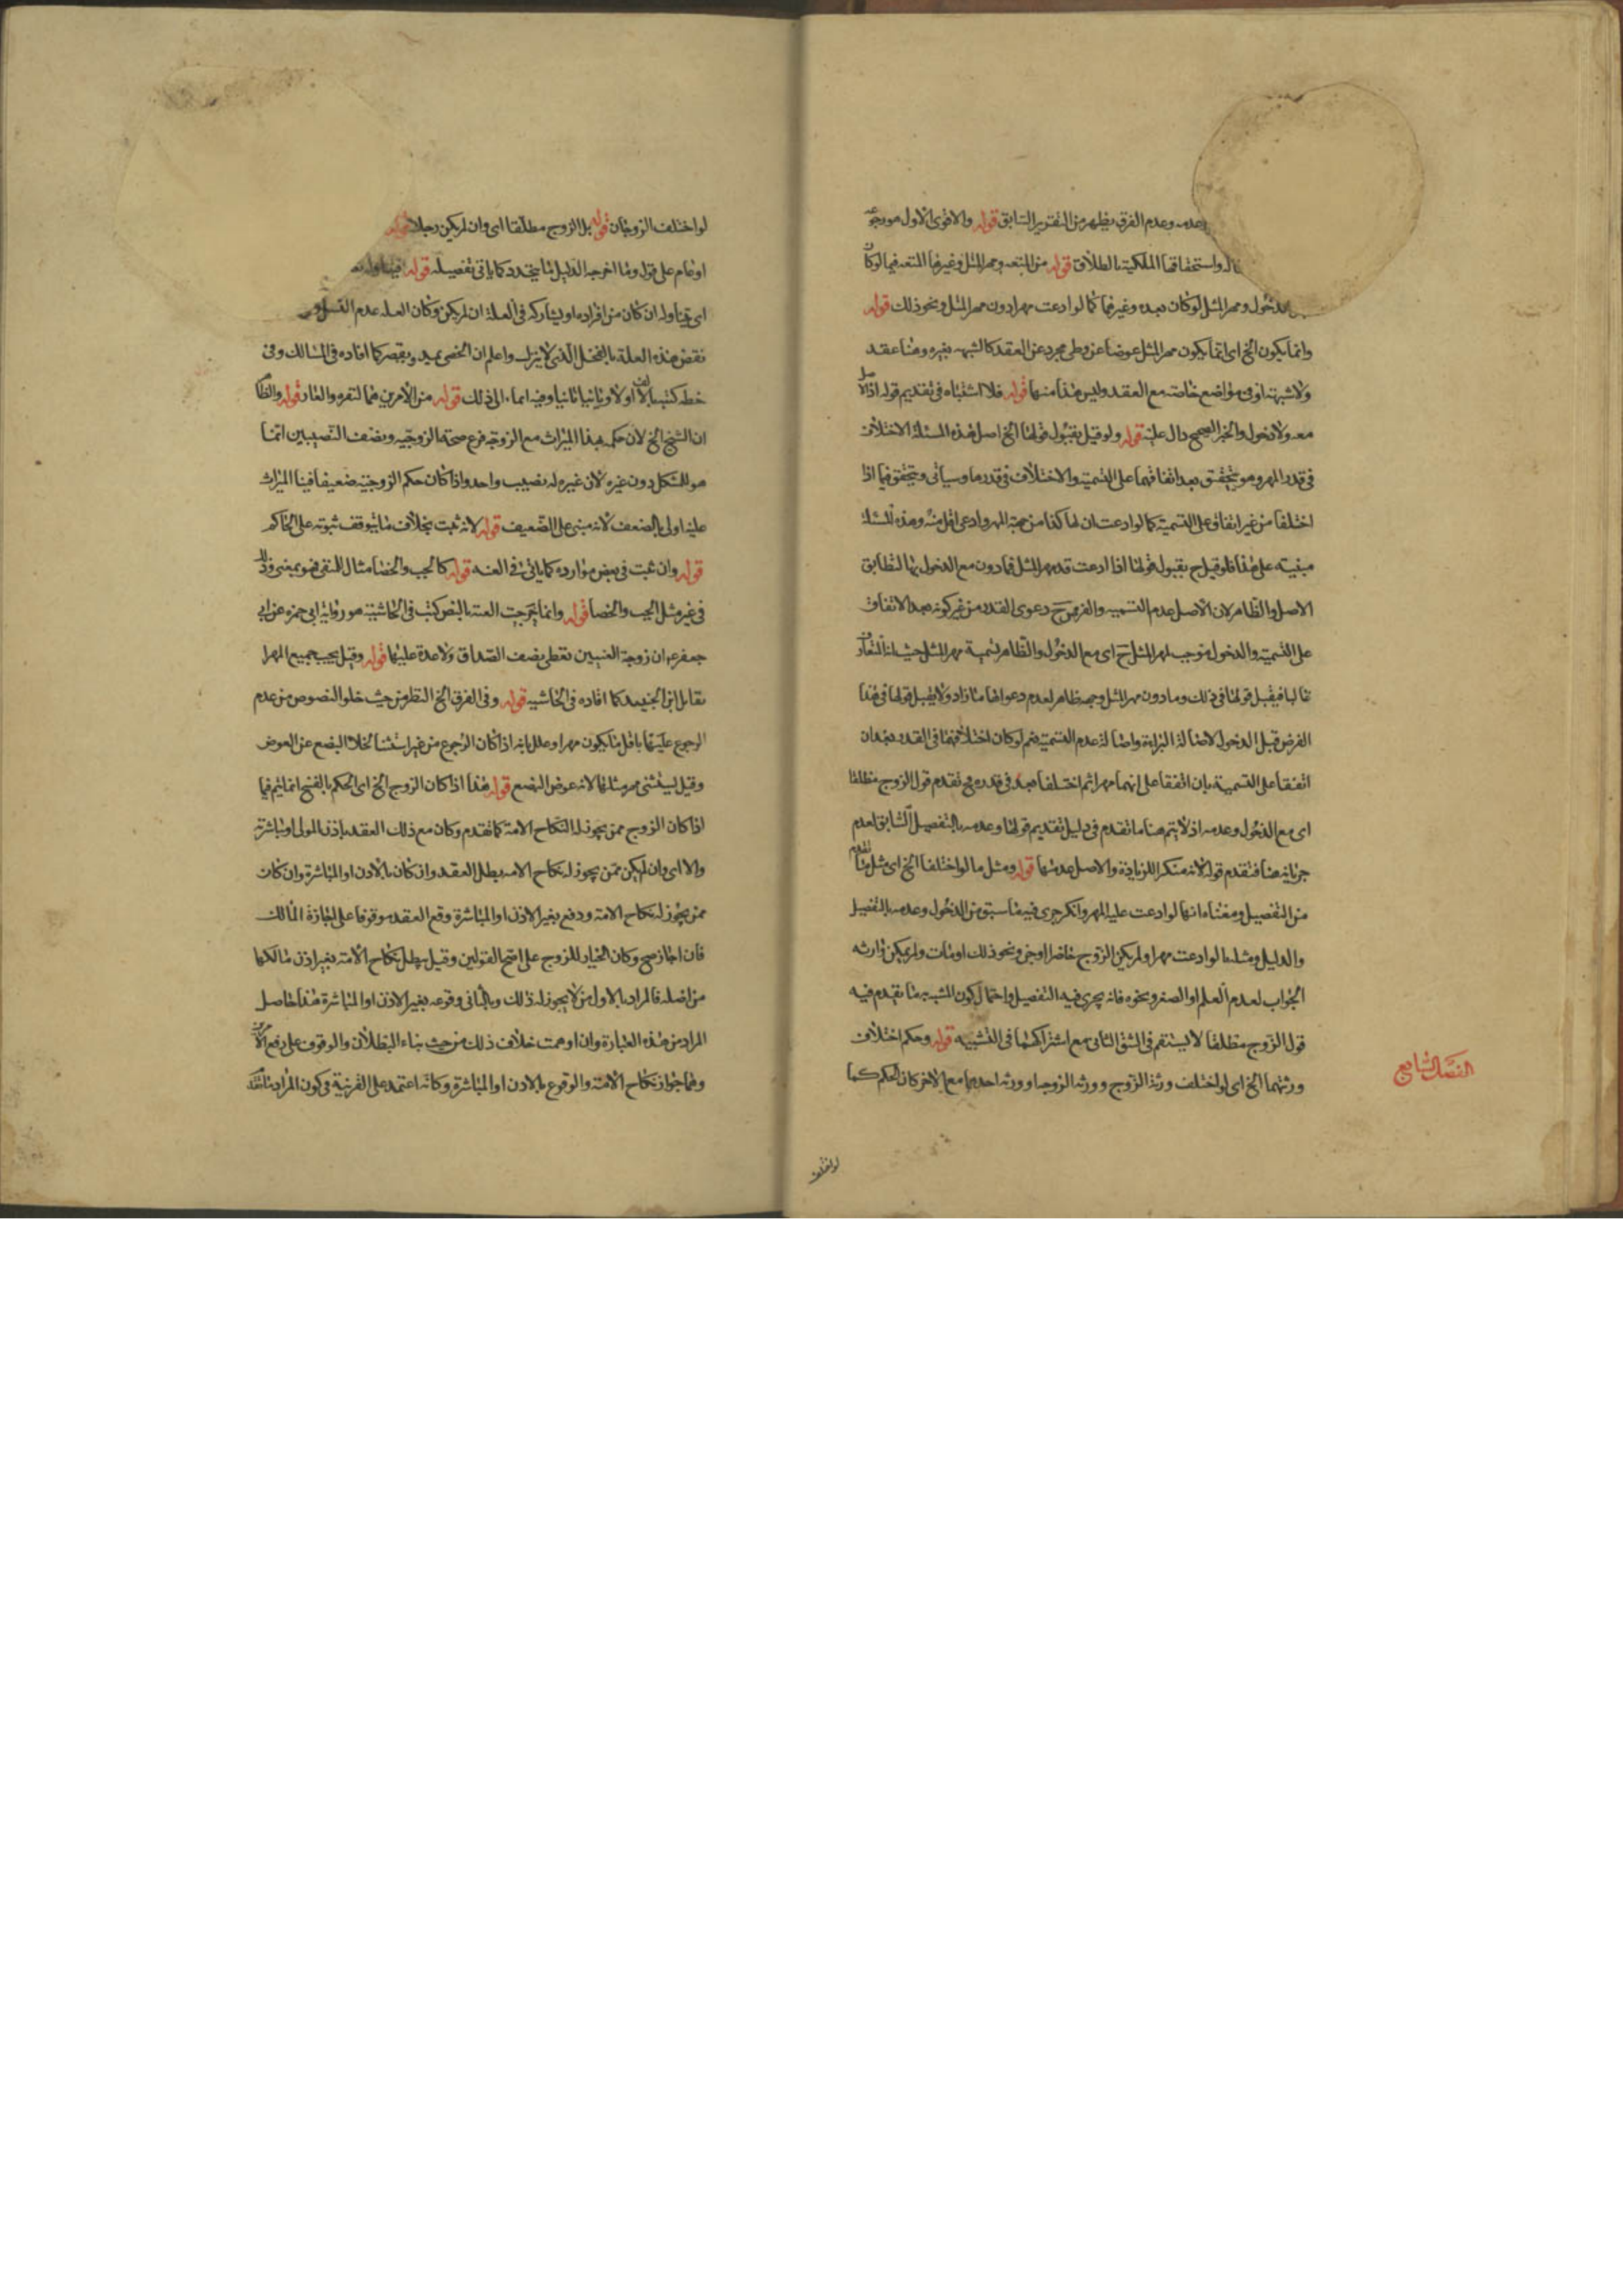 وعدمه وعدم الفرق يظهر من التقرير السابق قوله والاقوى الاول هو رجوعه
واستحقاقها الملكية بالطلاق قوله من المتعه ومهر المثل وغيرها المتعه فيما لو كان
الدخول ومهر المثل لو كان بعده وغيرهما كما لو ادعت مهرا دون مهر المثل ونحو ذلك قوله
وانما يكون الخ اى انما يكون مهر المثل عوضا عن وطى مجرد عن العقد كالشبهه بغيره وهنا عقد
ولا شبهة او فى مواضع خاصة مع العقد وليس هذا منها قوله فلا اشتباه فى تقديم قوله اذ الاصل
معه ولا دخول والخبر الصحيح دال عليه قوله ولو قيل بقبول قولها الخ اصل هذه المسئلة الاختلاف
فى قدر المهر وهو يتحقق بعد اتفاقهما على التسمية والاختلاف فى قدرها وسياتى ويتحقق فيما اذا
اختلفا من غير اتفاق على التسمية كما لو ادعت ان لها كذا من جهة المهر وادعى اقل منه وهذه المسئلة
مبنية على هذا فلو قيل ح بقبول قولها اذا ادعت قدر مهر المثل فما دون مع الدخول بها لتطابق
الاصل والظاهر لان الاصل عدم التسميه والفرض ح دعوى القدر من غير كونه بعد الاتفاق
على التسمية والدخول موجب لمهر المثل ح اى مع الدخول والظاهر تسمية مهر المثل حيث انه التعارف
غالبا فيقبل قولها فى ذلك وما دون مهر المثل وجهه ظاهر لعدم دعواها ما زاد ولا يقبل قولها فى هذا
الفرض قبل الدخول لاصالة البراءة واصالة عدم التسمية نعم لو كان اختلافهما فى القدر بعد ان
اتفقا على التسمية بان اتفقا على انهما مهرا ثم اختلفا بعد فى قدره ح تقدم قول الزوج مطلقا
اى مع الدخول وعدمه اذ لا يتم هنا ما تقدم فى دليل تقديم قولها وعدمه بالتفصيل السابق لعدم
جريانه هنا فتقدم قوله لانه منكر للزيادة والاصل عدمها قوله ومثل ما لو اختلفا الخ اى مثل ما تقدم
من التفصيل ومعناه انها لو ادعت عليه المهر وانكر جرى فيه ما سبق من الدخول وعدمه بالتفصيل
والدليل ومثله ما لو ادعت مهرا ولم يكن الزوج حاضرا او جن ونحو ذلك او مات ولم يمكن وارثه
الجواب لعدم العلم او الصغر ونحوه فانه يجرى فيه التفصيل واحتمال كون المشبه به ما تقدم فيه
قول الزوج مطلقا لا يستقيم فى الشق الثانى مع اشتراكهما فى التشبيه قوله وحكم اختلاف
ورثتهما الخ اى لو اختلف ورثة الزوج وورثه الزوجه او ورثه احدهما مع الاخر كان الحكم كما
الفصل السابع
لو اختلف
لو اختلف الزوجان قوله بل الزوج مطلقا اى وان لم يكن رجلا قوله
او عام على قول وما اخرجه الدليل ما يتجدد كما ياتى تفصيله قوله
اى يتناوله ان كان من افراده او يشاركه فى العلة ان لم يكن وكان العله عدم النسل
نقض هذه العلة بالفحل الذى لا ينزل واعلم ان الخصى يمد ويقصر كما افاده فى المسالك وفى
خطه كتبها بالالف او لا وثانيا وفيه ايماء الى ذلك قوله من الامرين هما التفرد والعار قوله والظاهر
ان الشيخ الخ لان حكمه بهذا الميراث مع الزوجة فرع صحة الزوجيه ونصف النصيبين انما
هو للمشكل دون غيره لان غيره له نصيب واحد واذا كان حكم الزوجية ضعيفا فبنا الميراث
عليه اولى بالضعف لانه مبنى على الضعيف قوله لانه ثبت بخلاف ما يتوقف ثبوته على الحاكم
قوله وان ثبت فى بعض موارده كما ياتى فى العنه قوله كالجب والخصا مثال للنفى فهو بمعنى وذلك
فى غير مثل الجب والخصا قوله وانما خرجت العنة بالنص كتب فى الحاشية هو رواية ابى حمزه عن ابى
جعفر ع ان زوجة العنين تعطى نصف الصداق ولا عدة عليها قوله وقيل يجب جميع المهر
نقابل ابن الجنيد كما افاده فى الحاشيه قوله وفى الفرق الخ النظر من حيث خلو النصوص من عدم
الرجوع عليها باقل ما يكون مهرا وعلل بانه اذا كان الرجوع من غير استثنا لخلا البضع عن العوض
وقيل يستثنى مهر مثلها لانه عوض البضع قوله هذا اذا كان الزوج الخ اى الحكم بالفسخ انما يتم فيما
اذا كان الزوج ممن يجوز له النكاح الامة كما تقدم وكان مع ذلك العقد باذن المولى او مباشرة
والا اى وان لم يكن ممن يجوز له نكاح الامه بطل العقد وان كان بالاذن او المباشرة وان كان
ممن يجوز له نكاح الامة ودفع بغير الاذن او المباشرة وقع العقد موقوفا على اجازة المالك
فان اجاز صح وكان الخيار للزوج على اصح القولين وقيل يبطل نكاح الامة بغير اذن مالكها
من اصله فالمراد بالاول من لا يجوز له ذلك وبالثانى وقوعه بغير الاذن او المباشرة هذا حاصل
المراد من هذه العبارة وان اوهمت خلاف ذلك من حيث بناء البطلان والوقوف على رفع الامرين
وهما جواز نكاح الامة والوقوع بالاذن او المباشرة وكانه اعتمد على القرينة فى كون المراد